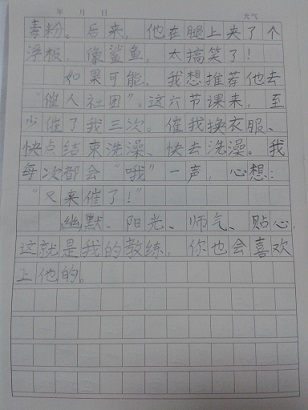 年 月 日 天气
毒粉。后来，他在腿上来了个
浮板，像鲨鱼，太搞笑了！
如果可能，我想推荐他去
“催人社团”，这六节课来，至
少催了我三次。催我换衣服、
快点结束洗澡、快去洗澡。我
每次都会“哦”一声，心想：
“又来催了！”
幽默、阳光、帅气、贴心，
这就是我的教练，你也会喜欢
上他的。